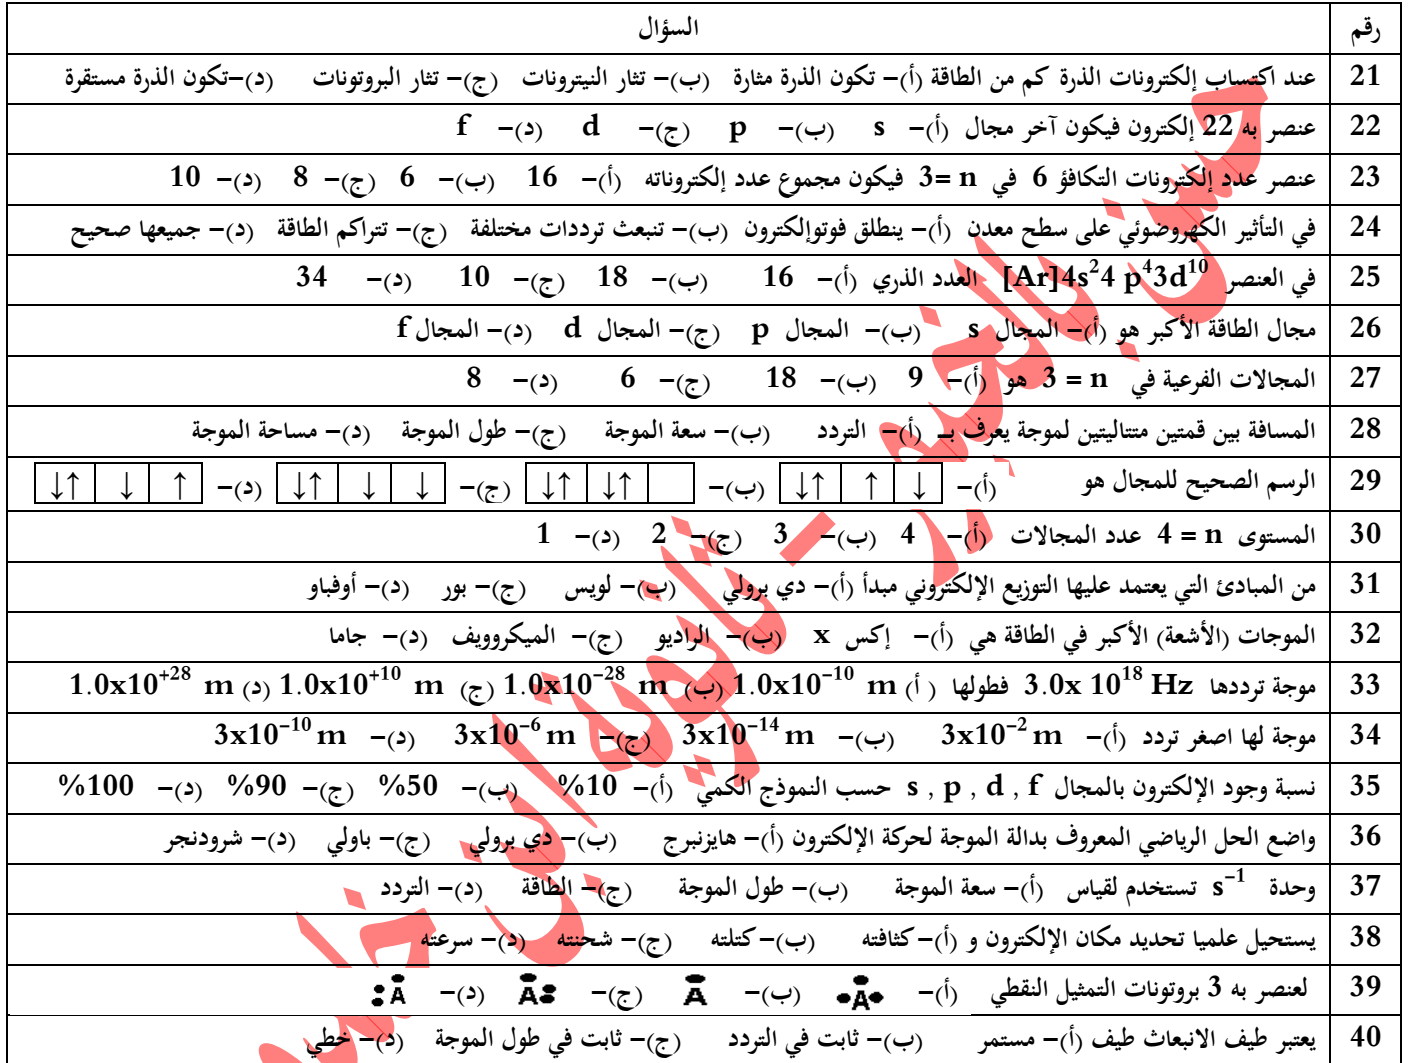 رقم السؤال
21 عند اكتساب إلكترونات الذرة كم من الطاقة (أ)– تكون الذرة مثارة (ب)– تثار النيترونات (ج)– تثار البروتونات (د)–تكون الذرة مستقرة
22 عنصر به 22 إلكترون فيكون آخر مجال (أ)– s (ب)– p (ج)– d (د)– f
23 عنصر عدد إلكترونات التكافؤ 6 في n =3 فيكون مجموع عدد إلكتروناته (أ)– 16 (ب)– 6 (ج)– 8 (د)– 10
24 في التأثير الكهروضوئي على سطح معدن (أ)– ينطلق فوتوإلكترون (ب)– تنبعث ترددات مختلفة (ج)– تتراكم الطاقة (د)– جميعها صحيح
25 في العنصر [Ar]4s²4 p⁴3d¹⁰ العدد الذري (أ)– 16 (ب)– 18 (ج)– 10 (د)– 34
26 مجال الطاقة الأكبر هو (أ)– المجال s (ب)– المجال p (ج)– المجال d (د)– المجال f
27 المجالات الفرعية في n = 3 هو (أ)– 9 (ب)– 18 (ج)– 6 (د)– 8
28 المسافة بين قمتين متتاليتين لموجة يعرف بـ (أ)– التردد (ب)– سعة الموجة (ج)– طول الموجة (د)– مساحة الموجة
29 الرسم الصحيح للمجال هو (أ)– ↓↑ ↑ ↓ (ب)– ↓↑ ↓↑ (ج)– ↓↑ ↓ ↓ (د)– ↓↑ ↓ ↑
30 المستوى n = 4 عدد المجالات (أ)– 4 (ب)– 3 (ج)– 2 (د)– 1
31 من المبادئ التي يعتمد عليها التوزيع الإلكتروني مبدأ (أ)– دي برولي (ب)– لويس (ج)– بور (د)– أوفباو
32 الموجات (الأشعة) الأكبر في الطاقة هي (أ)– إكس x (ب)– الراديو (ج)– الميكروويف (د)– جاما
33 موجة ترددها 3.0x 10¹⁸ Hz فطولها (أ) 1.0x10⁻¹⁰ m (ب) 1.0x10⁻²⁸ m (ج) 1.0x10⁺¹⁰ m (د) 1.0x10⁺²⁸ m
34 موجة لها اصغر تردد (أ)– 3x10⁻² m (ب)– 3x10⁻¹⁴ m (ج)– 3x10⁻⁶ m (د)– 3x10⁻¹⁰ m
35 نسبة وجود الإلكترون بالمجال s , p , d , f حسب النموذج الكمي (أ)– 10% (ب)– 50% (ج)– 90% (د)– 100%
36 واضع الحل الرياضي المعروف بدالة الموجة لحركة الإلكترون (أ)– هايزنبرج (ب)– دي برولي (ج)– باولي (د)– شرودنجر
37 وحدة s⁻¹ تستخدم لقياس (أ)– سعة الموجة (ب)– طول الموجة (ج)– الطاقة (د)– التردد
38 يستحيل علميا تحديد مكان الإلكترون و (أ)– كثافته (ب)– كتلته (ج)– شحنته (د)– سرعته
39 لعنصر به 3 بروتونات التمثيل النقطي (أ)– A (ب)– A (ج)– A (د)– A
40 يعتبر طيف الانبعاث طيف (أ)– مستمر (ب)– ثابت في التردد (ج)– ثابت في طول الموجة (د)– خطي